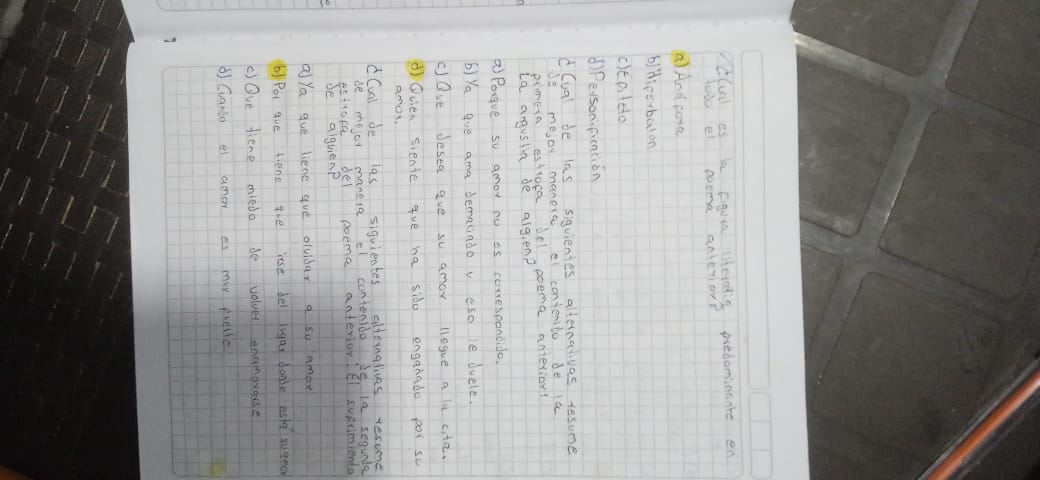 ¿Cual es la figura literaria predominante en
todo el poema anterior?
a) Anáfora
b) Hiperbaton
c) Epíteto
d) Personificación
¿Cual de las siguientes alternativas resume
de mejor manera el contenido de la
primera estrofa del poema anterior!
La angustia de algien?
a) Porque su amor no es correspondido.
b) Ya que ama demaciado y eso le duele.
c) Que desea que su amor llegue a la cita.
d) Quien siente que ha sido engañado por su
amor.
¿Cual de las siguientes alternativas resume
de mejor manera el contenido de la segunda
estrofa del poema anterior: El sufrimiento
de alguien?
a) Ya que tiene que olvidar a su amor
b) Por que tiene que irse del lugar donde está su amor
c) Que tiene miedo de volver enamorarse
d) Cuando el amor es muy fuerte